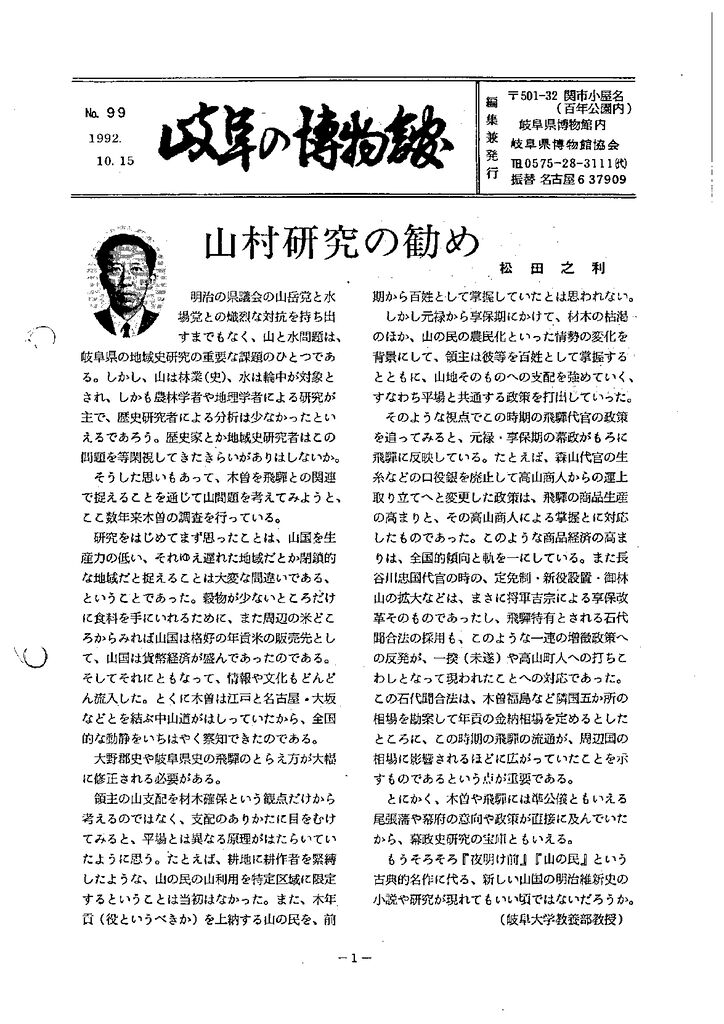 No. 99
1992.
10. 15
岐阜の博物館
編集兼発行
〒501-32 関市小屋名
(百年公園内)
岐阜県博物館内
岐阜県博物館協会
TEL0575-28-3111㈹
振替 名古屋 6 37909
山村研究の勧め
松田之利
明治の県議会の山岳党と水
場党との熾烈な対抗を持ち出
すまでもなく、山と水問題は、
岐阜県の地域史研究の重要な課題のひとつであ
る。しかし、山は林業(史)、水は輪中が対象と
され、しかも農林学者や地理学者による研究が
主で、歴史研究者による分析は少なかったとい
えるであろう。歴史家とか地域史研究者はこの
問題を等閑視してきたきらいがありはしないか。
そうした思いもあって、木曽を飛驒との関連
で捉えることを通じて山問題を考えてみようと、
ここ数年来木曽の調査を行っている。
研究をはじめてまず思ったことは、山国を生
産力の低い、それゆえ遅れた地域だとか閉鎖的
な地域だと捉えることは大変な間違いである、
ということであった。穀物が少ないところだけ
に食料を手にいれるために、また周辺の米どこ
ろからみれば山国は格好の年貢米の販売先とし
て、山国は貨幣経済が盛んであったのである。
そしてそれにともなって、情報や文化もどんど
ん流入した。とくに木曽は江戸と名古屋・大坂
などとを結ぶ中山道がはしっていたから、全国
的な動静をいちはやく察知できたのである。
大野郡史や岐阜県史の飛驒のとらえ方が大幅
に修正される必要がある。
領主の山支配を材木確保という観点だけから
考えるのではなく、支配のありかたに目をむけ
てみると、平場とは異なる原理がはたらいてい
たように思う。たとえば、耕地に耕作者を緊縛
したような、山の民の山利用を特定区域に限定
するということは当初はなかった。また、木年
貢(役というべきか)を上納する山の民を、前
期から百姓として掌握していたとは思われない。
しかし元禄から享保期にかけて、材木の枯渇
のほか、山の民の農民化といった情勢の変化を
背景にして、領主は彼等を百姓として掌握する
とともに、山地そのものへの支配を強めていく、
すなわち平場と共通する政策を打出していった。
そのような視点でこの時期の飛驒代官の政策
を追ってみると、元禄・享保期の幕政がもろに
飛驒に反映している。たとえば、森山代官の生
糸などの口役銀を廃止して高山商人からの運上
取り立てへと変更した政策は、飛驒の商品生産
の高まりと、その高山商人による掌握とに対応
したものであった。このような商品経済の高ま
りは、全国的傾向と軌を一にしている。また長
谷川忠国代官の時の、定免制・新役設置・御林
山の拡大などは、まさに将軍吉宗による享保改
革そのものであったし、飛驒特有とされる石代
聞合法の採用も、このような一連の増徴政策へ
の反発が、一揆(未遂)や高山町人への打ちこ
わしとなって現われたことへの対応であった。
この石代聞合法は、木曽福島など隣国五か所の
相場を勘案して年貢の金納相場を定めるとした
ところに、この時期の飛驒の流通が、周辺国の
相場に影響されるほどに広がっていたことを示
すものであるという点が重要である。
とにかく、木曽や飛驒には準公儀ともいえる
尾張藩や幕府の意向や政策が直接に及んでいた
から、幕政史研究の宝庫ともいえる。
もうそろそろ『夜明け前』『山の民』という
古典的名作に代る、新しい山国の明治維新史の
小説や研究が現れてもいい頃ではないだろうか。
(岐阜大学教養部教授)
－1－